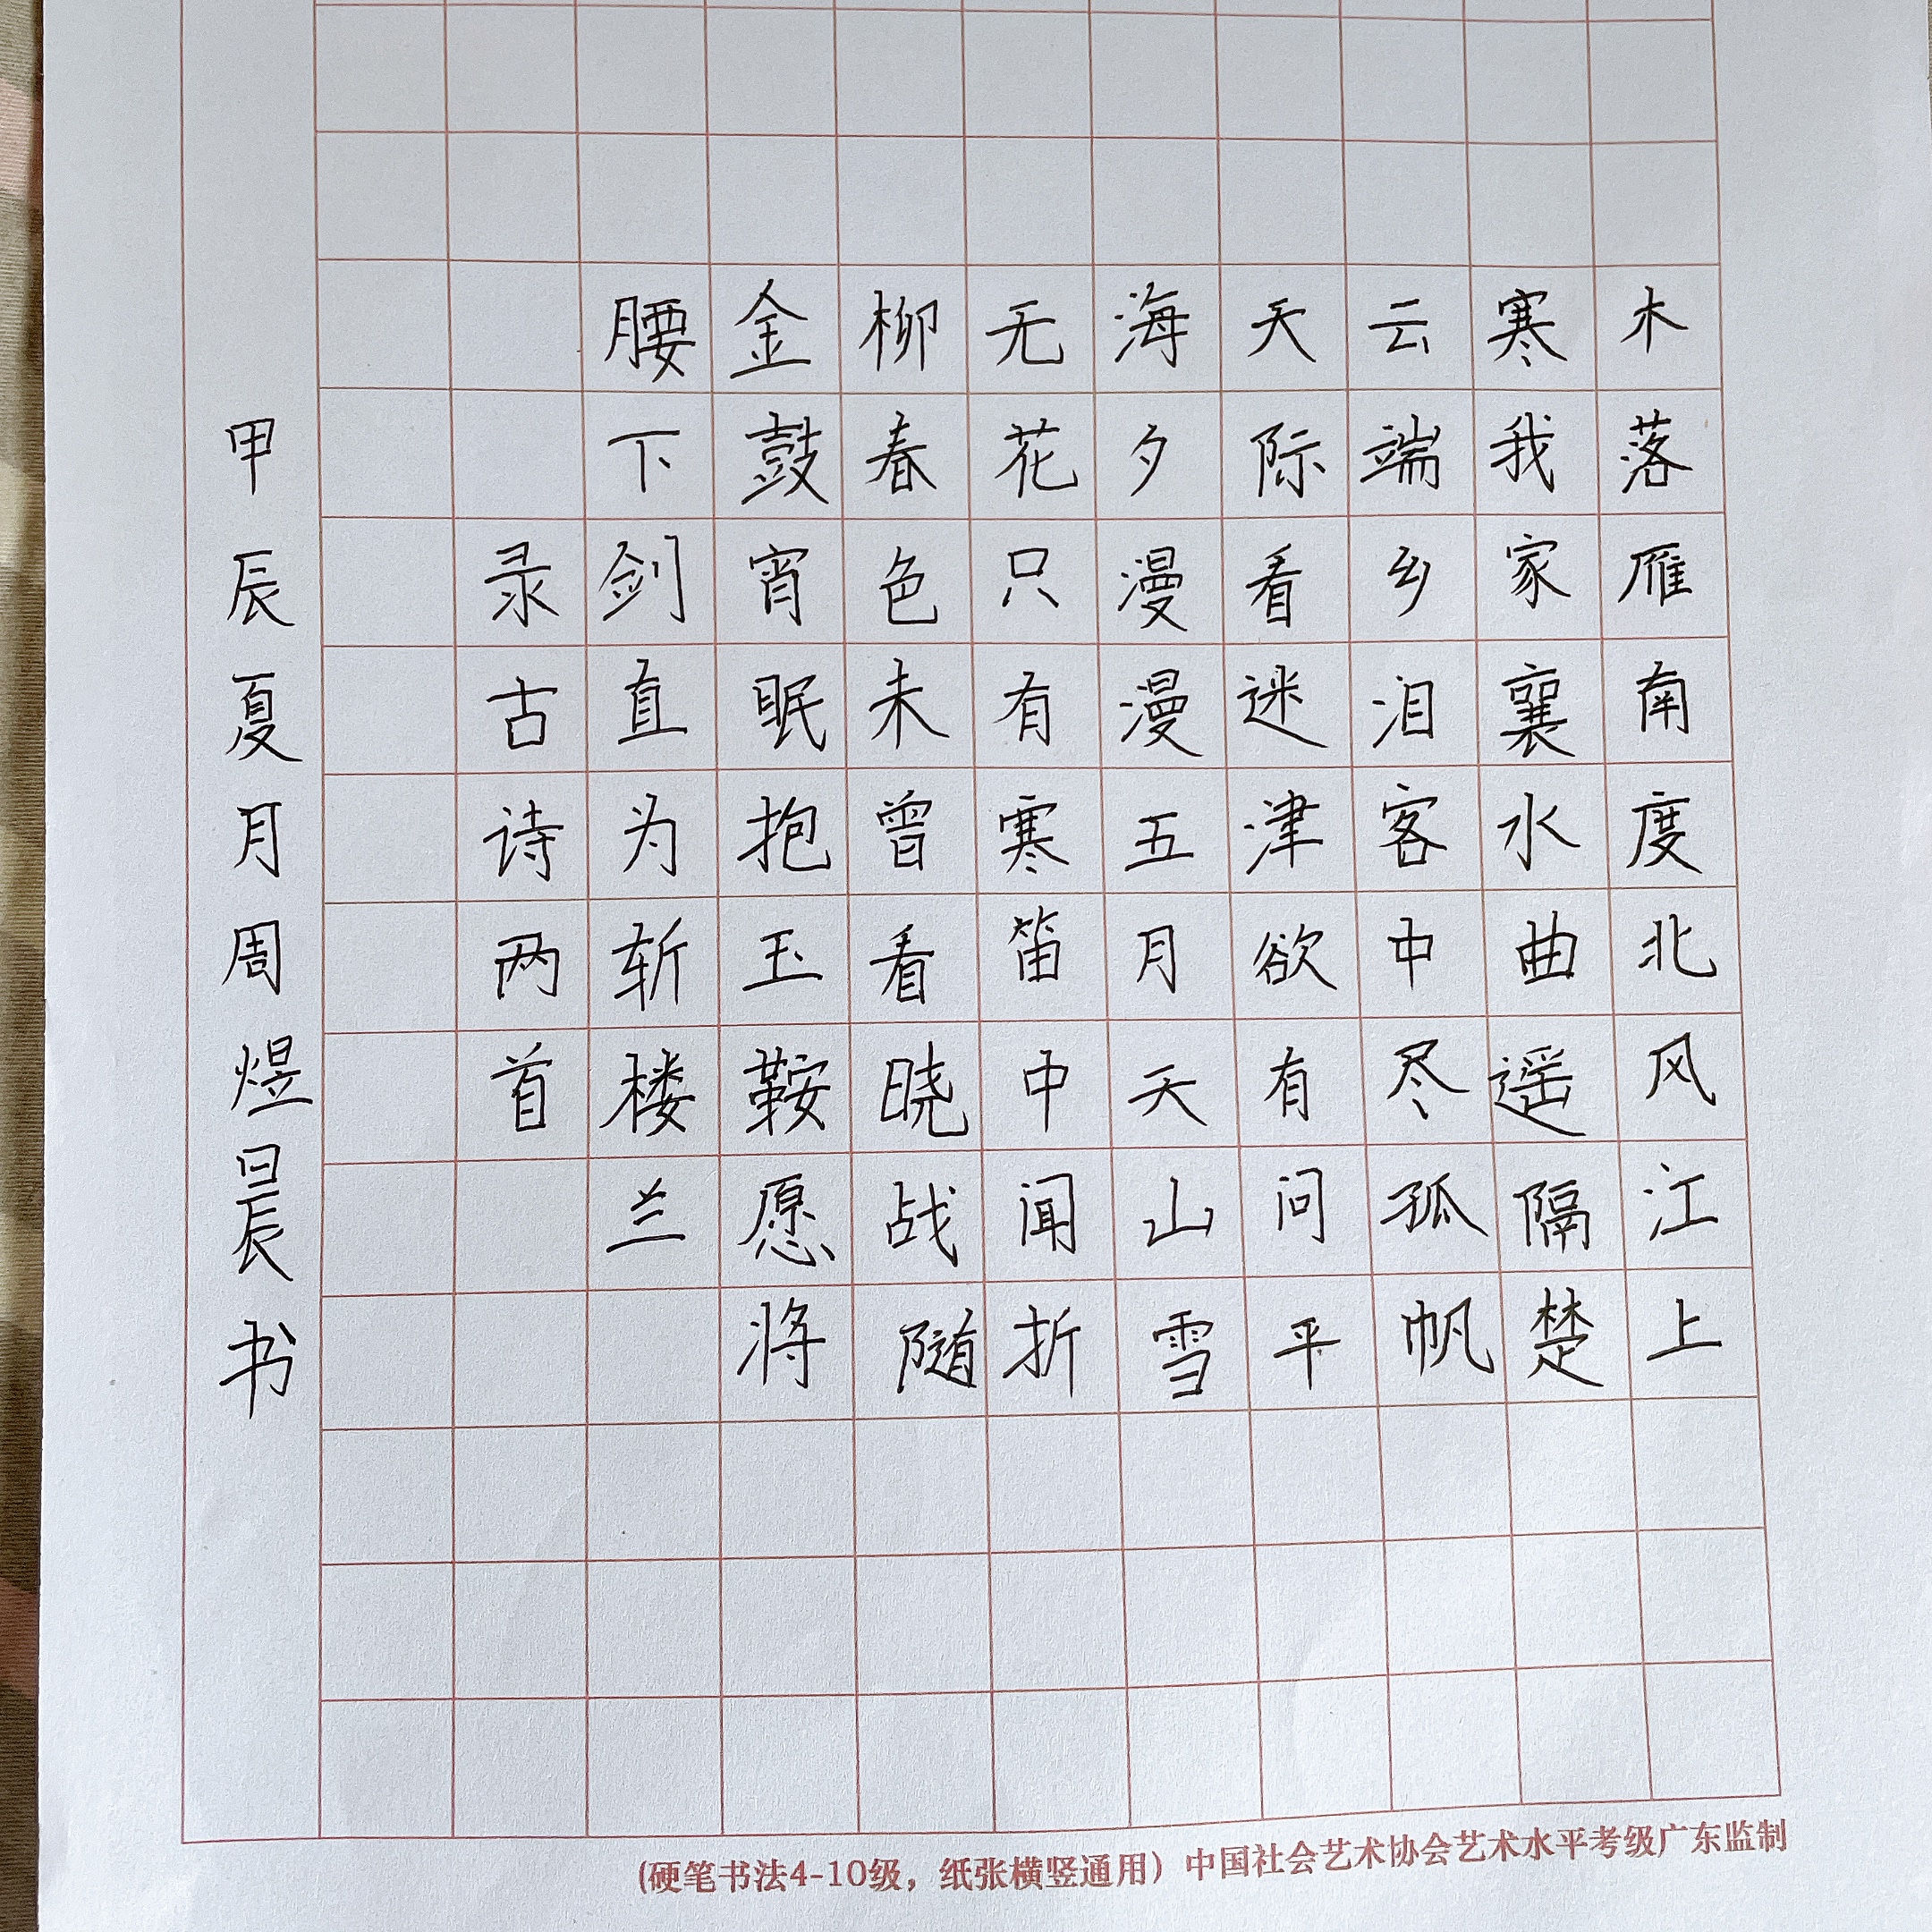 木落雁南度北风江上
寒我家襄水曲遥隔楚
云端乡泪客中尽孤帆
天际看迷津欲有问平
海夕漫漫五月天山雪
无花只有寒笛中闻折
柳春色未曾看晓战随
金鼓宵眠抱玉鞍愿将
腰下剑直为斩楼兰
录古诗两首
甲辰夏月周煜晨书
(硬笔书法4-10级，纸张横竖通用) 中国社会艺术协会艺术水平考级广东监制